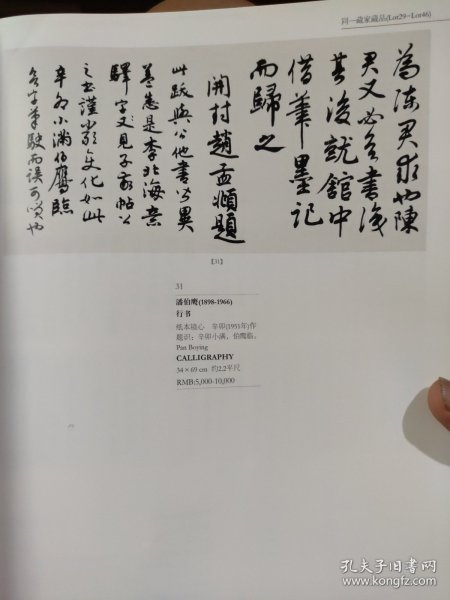 同一藏家藏品(Lot29–Lot46)
為陳君求也陳
君又必書後
其後就館中
借筆墨記
而歸之
開封趙孟頫題
此跋與公他書少異
蓋意是李北海
字又見子家帖公
之書謹嚴變化如此
辛卯小滿伯鷹臨
字筆駛而誤可也
【31】
31
潘伯鹰(1898-1966)
行书
纸本镜心 辛卯(1951年)作
题识：辛卯小满，伯鹰临。
Pan Boying
CALLIGRAPHY
34×69 cm 约2.2平尺
RMB:5,000-10,000
孔夫子旧书网
www.kongfz.com